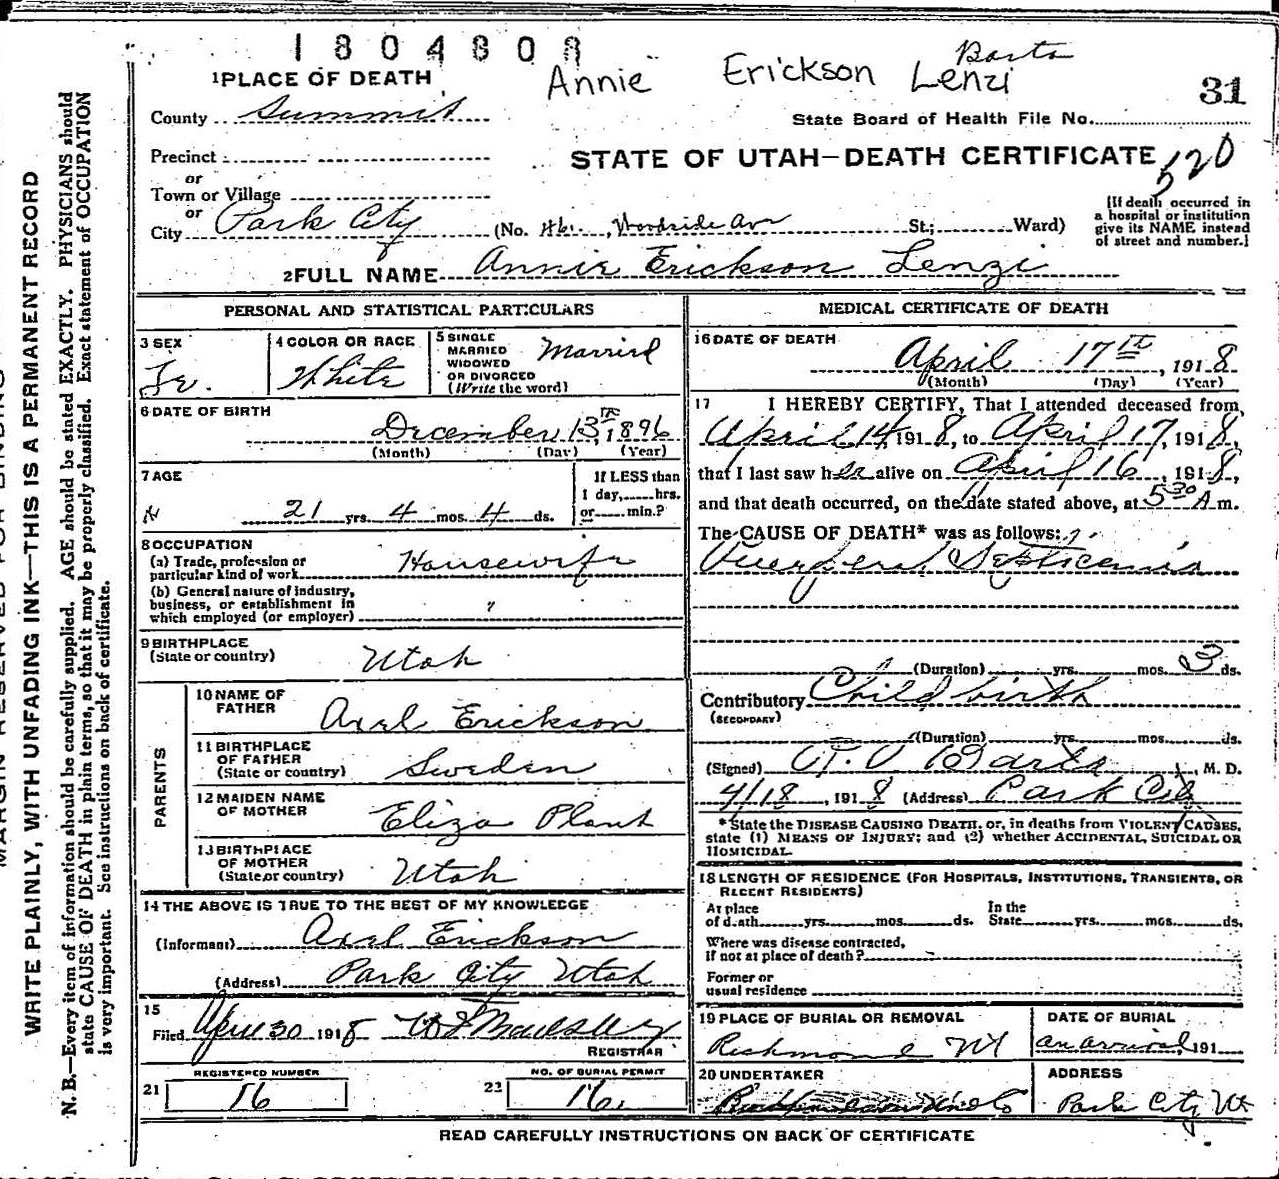 1804808
Annie Erickson Lenzi
Barta
31
1 PLACE OF DEATH
County Summit
State Board of Health File No.
Precinct
STATE OF UTAH—DEATH CERTIFICATE
520
or
Town or Village
or
City Park City (No. 461, Woodside Av St; Ward)
[If death occurred in
a hospital or institution
give its NAME instead
of street and number.]
2 FULL NAME Annie Erickson Lenzi
PERSONAL AND STATISTICAL PARTICULARS
3 SEX
Fe.
4 COLOR OR RACE
White
5 SINGLE
MARRIED
WIDOWED
OR DIVORCED
(Write the word)
Married
6 DATE OF BIRTH
December 13th, 1896
(Month) (Day) (Year)
7 AGE
21 yrs. 4 mos. 4 ds.
If LESS than
1 day,......hrs.
or......min.?
8 OCCUPATION
(a) Trade, profession or
particular kind of work Housewife
(b) General nature of industry,
business, or establishment in
which employed (or employer) "
9 BIRTHPLACE
(State or country) Utah
PARENTS
10 NAME OF
FATHER Axel Erickson
11 BIRTHPLACE
OF FATHER
(State or country) Sweden
12 MAIDEN NAME
OF MOTHER Eliza Plant
13 BIRTHPLACE
OF MOTHER
(State or country) Utah
14 THE ABOVE IS TRUE TO THE BEST OF MY KNOWLEDGE
(Informant) Axel Erickson
(Address) Park City Utah
15
Filed April 30 1918
REGISTRAR
REGISTERED NUMBER
21 16
NO. OF BURIAL PERMIT
23 16.
MEDICAL CERTIFICATE OF DEATH
16 DATE OF DEATH
April 17th, 1918
(Month) (Day) (Year)
17 I HEREBY CERTIFY, That I attended deceased from,
April 14, 1918, to April 17, 1918,
that I last saw her alive on April 16, 1918,
and that death occurred, on the date stated above, at 5 30 A m.
The CAUSE OF DEATH* was as follows:
Puerperal Septicemia
(Duration) yrs. mos. 3 ds.
Contributory Child birth
(SECONDARY)
(Duration) yrs. mos. ds.
(Signed) Barta, M. D.
4/18, 1918 (Address) Park City
*State the DISEASE CAUSING DEATH, or, in deaths from VIOLENT CAUSES,
state (1) MEANS OF INJURY; and (2) whether ACCIDENTAL, SUICIDAL OR
HOMICIDAL.
18 LENGTH OF RESIDENCE (FOR HOSPITALS, INSTITUTIONS, TRANSIENTS, OR
RECENT RESIDENTS)
At place
of death......yrs......mos......ds.
In the
State......yrs......mos......ds.
Where was disease contracted,
if not at place of death?
Former or
usual residence
19 PLACE OF BURIAL OR REMOVAL
Richmond Ut
DATE OF BURIAL
on arrival, 191
20 UNDERTAKER
ADDRESS
Park City Ut
READ CAREFULLY INSTRUCTIONS ON BACK OF CERTIFICATE
MARGIN RESERVED FOR BINDING
WRITE PLAINLY, WITH UNFADING INK—THIS IS A PERMANENT RECORD
N. B.—Every item of information should be carefully supplied. AGE should be stated EXACTLY. PHYSICIANS should
state CAUSE OF DEATH in plain terms, so that it may be properly classified. Exact statement of OCCUPATION
is very important. See instructions on back of certificate.